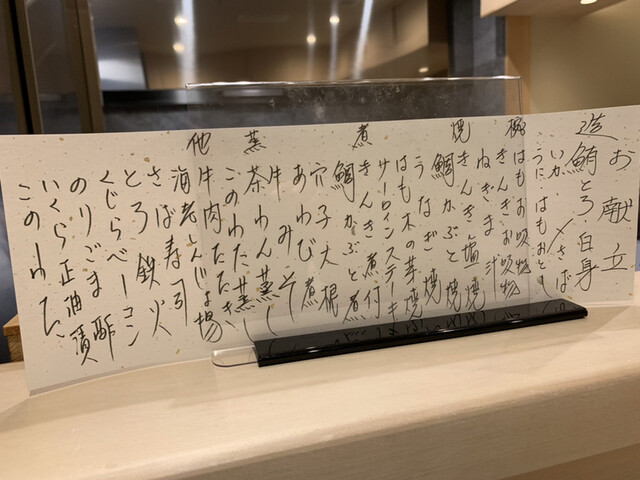 お献立
造
鮪とろ 白身
いか さば
うに はもおとし
椀
はもお吸物
きんきお吸物
ねぎま汁
焼
きんき塩焼
鯛かぶと焼
うなぎ
はも木の芽焼
サーロインステーキ
煮
きんき煮付
鯛かぶと煮
穴子大根
あわび煮
牛みそ
蒸
茶わん蒸し
このわた蒸し
他
牛肉たたき
海老しんじょ揚
さば寿司
とろ鉄火
くじらベーコン
のりごま酢
いくら正油漬
このわた